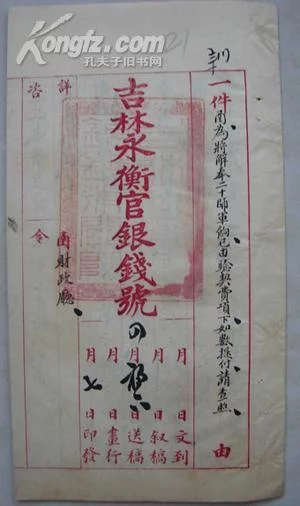 Kongfz.com
孔夫子旧书网
21
一件函為將解奉二十師軍餉已由驗契費項下如數撥付請查照
由
吉林永衡官銀錢號
月 日文到
月 日叙稿
月 日送稿
月 日畫行
月七日印發
詳
咨
函財政廳
令